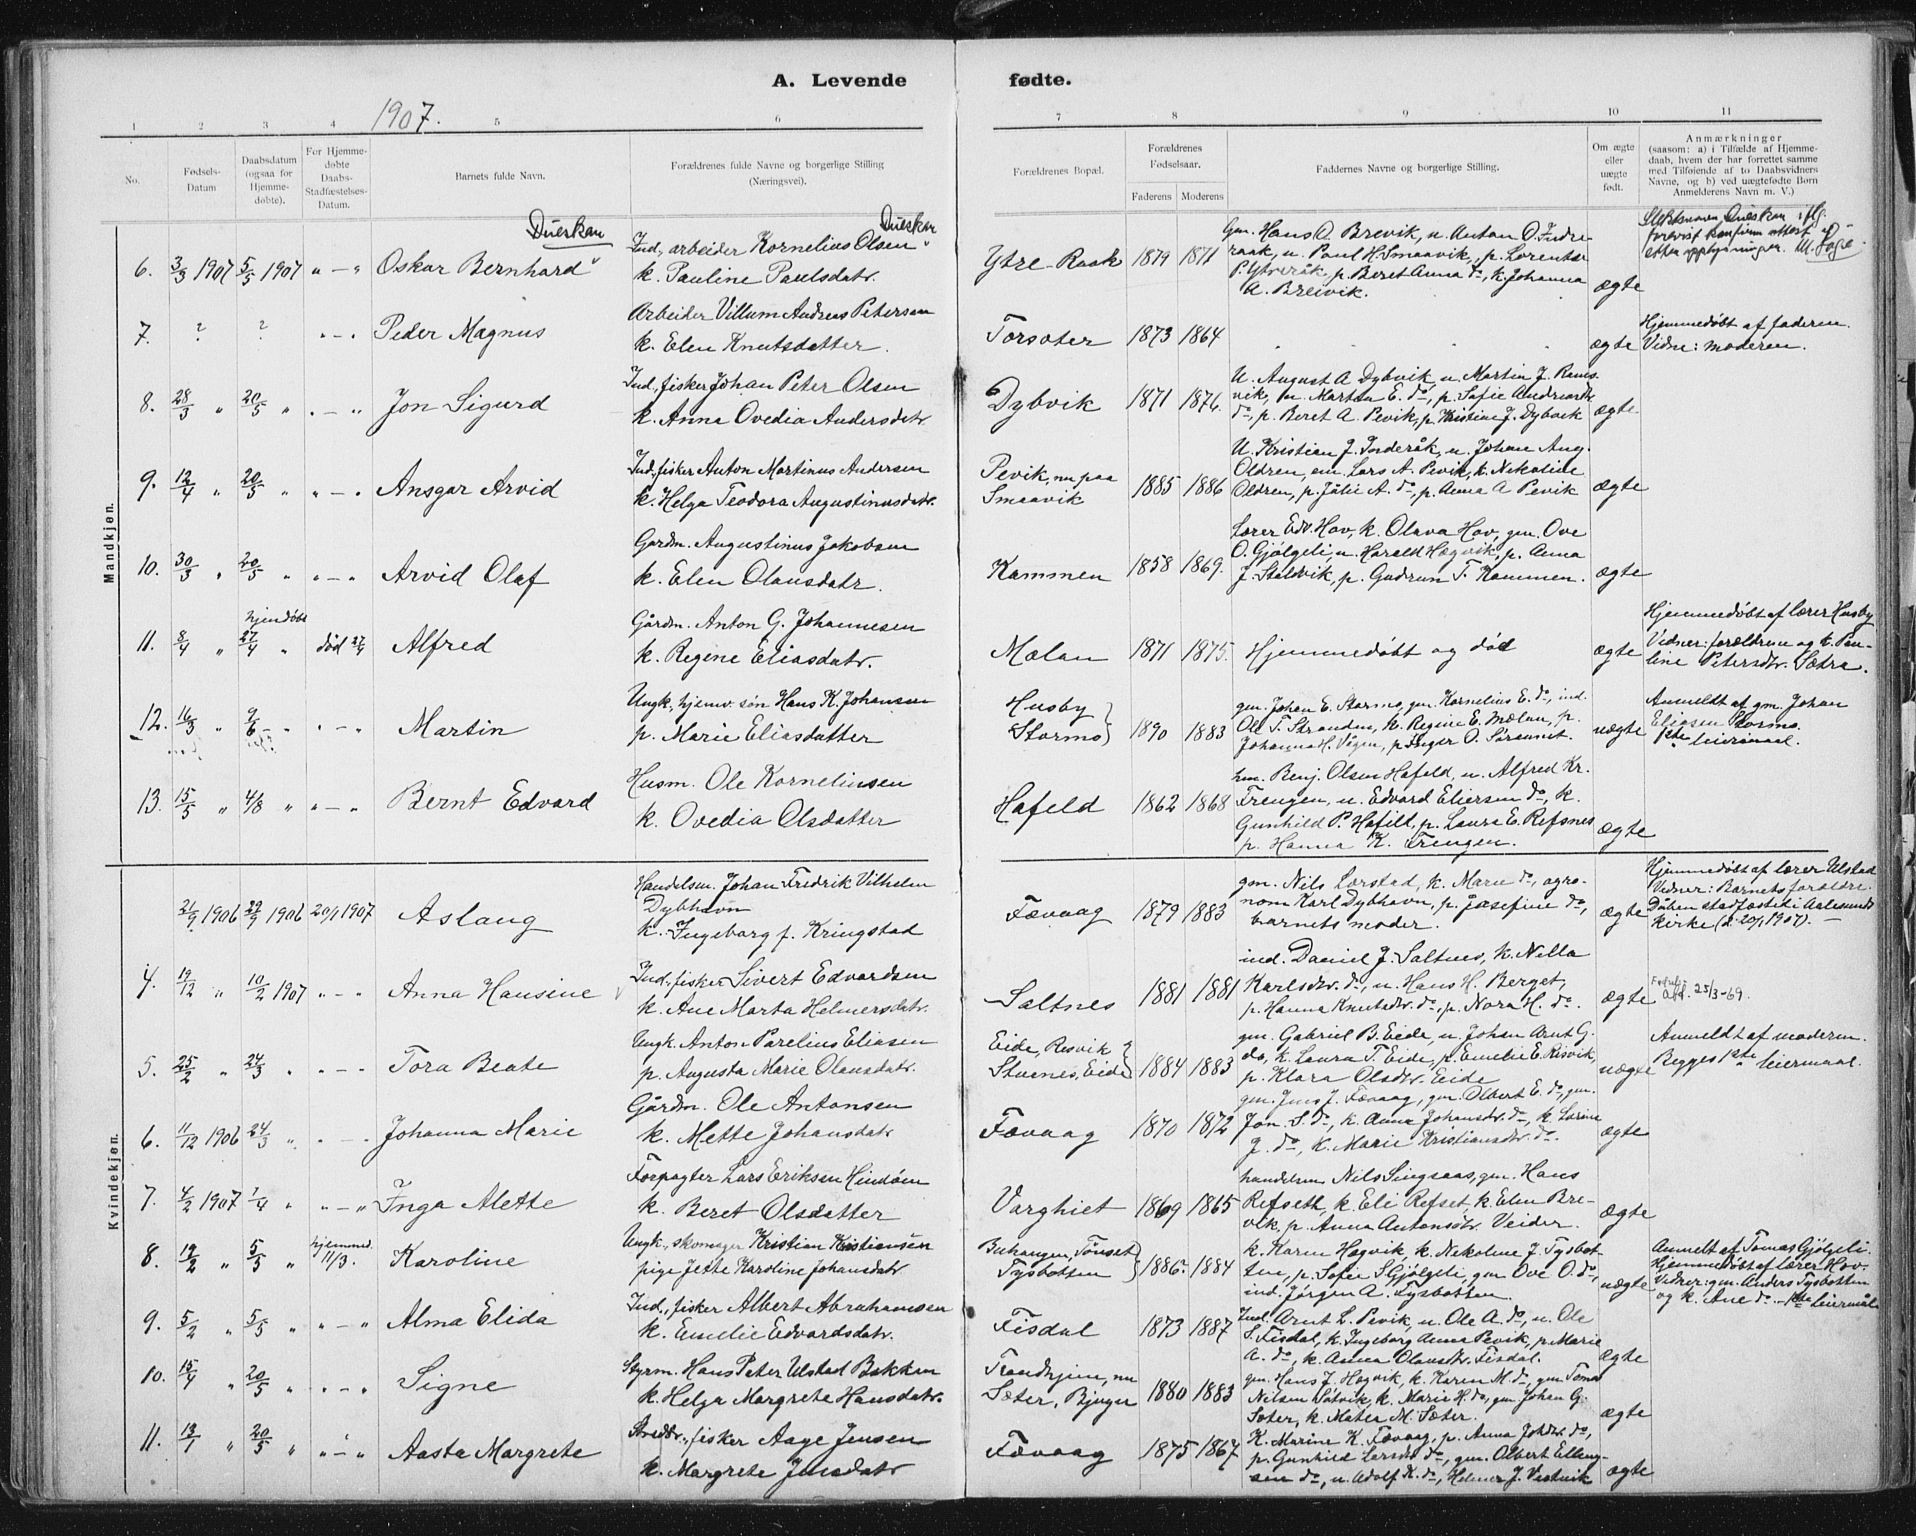 A. Levende fødte.
1907.
1 2 3 4 5 6 7 8 9 10 11
No.
Fødsels-
Datum
Daabsdatum
(ogsaa for
Hjemme-
døbte).
For Hjemme-
døbte
Daabs-
Stadfæstelses-
Datum.
Barnets fulde Navn.
Forældrenes fulde Navne og borgerlige Stilling
(Næringsvei).
Forældrenes Bopæl.
Forældrenes
Fødselsaar.
Faderens Moderens
Faddernes Navne og borgerlige Stilling.
Om ægte
eller
uægte
født.
Anmærkninger
(saasom: a) i Tilfælde af Hjemme-
daab, hvem der har forrettet samme
med Tilføiende af to Daabsvidners
Navne, og b) ved uægtefødte Børn
Anmelderens Navn m. V.)
Mandkjøn.
Dueskar Dueskar
6. 3/3 1907 5/5 1907 " — " Oskar Bernhard"
Ind., arbeider Kornelius Olsen"
k. Pauline Paulsdatr.
Ytre-Raak 1879 1871
Gm. Hans O. Brevik, u. Anton O. Indre-
raak, u. Paul H. Smaavik, p.
p. Beret Anna do, k. Johanna
A. Breivik.
ægte
7. ? ? " — " Peder Magnus
Arbeider Villum Andreas Petersen
k. Elen Knutsdatter.
Torsoter 1873 1864
ægte
Hjemmedøbt af faderen.
Vidne: moderen.
8. 28/3 " 20/5 " " — " Jon Sigurd
Ind., fisker Johan Peter Olsen
k. Anna Ovedia Andersdatr.
Dybvik 1871 1876.
U. August A Dybvik, u. Martin J. Rams-
vik, u. Morten E. do, p. Sofie
do, p. Beret A Pevik, p. Kristine J. Dybvik
ægte
9. 12/4 " 20/5 " " — " Ansgar Arvid
Ind., fisker Anton Martinus Andersen
k. Helga Teodora Augustinusdatr.
Pevik, nu paa
Smaavik
1885 1886
U. Kristian J. Inderåk, u. Johan Aug.
Oldren, em Lars A. Pevik, k. Nekoline
Oldren, p. Julie A. do, p. Anna A Pevik
ægte
10. 30/3 " 20/5 " " — " Arvid Olaf
Gårdm. Augustinus Jakobsen
k. Elen Olausdatr.
Kammen 1858 1869.
Lærer Edv. Hov, k. Olava Hov, gm. Ove
O. Gjølgeli, u. Harald Hægvik, p. Anna
J. Stølsvik, p. Gudrun T. Kammen.
ægte
11. 8/4 " hjemdøbt 27/4 " død 27/4 Alfred
Gårdm. Anton G. Johannesen
k. Regine Eliasdatr.
Mælan 1871 1875.
Hjemmedøbt og død
ægte
Hjemmedøbt af lærer Husby
Vidner: forældrene og k. Pau-
line Petersdtr. Sætra.
12. 16/3 " 9/6 " " — " Martin
Ungk., hjemv. søn Hans K. Johansen
p. Marie Eliasdatter
Husby
Stormo
1890 1883
gm. Johan E. Stormo, gm. Kornelius E. do, ind.
Ole T. Stranden, k. Regine E. Mælan, p.
Johanna H. Vågen, p. Inger O.
uægte
Anmeldt af gm. Johan
Eliasen Stormo.
1ste leiermaal.
13. 15/5 " 4/8 " " — " Bernt Edvard
Husm. Ole Korneliusen
k. Ovedia Olsdatter
Hofeld 1862 1868
hm. Benj. Olsen Hofeld, u. Alfred Kr.
Frengen, u. Edvard Eliersen do, k.
Gunhild P. Hafelt, p. Laura E. Refsnes
p. Hanna K. Frengen.
ægte
Kvindekjøn.
21/9 1906 29/9 1906 20/1 1907 Aslaug
Handelsm. Johan Fredrik Vilhelm
Dybhavn
k. Ingeborg f. Kringstad
Fævaag 1879 1883
gm. Nils Lorstad, k. Marie do, agro-
nom Karl Dybhavn, p. Josefine do,
barnets moder.
ægte
Hjemmedøbt af lærer Ulstad
Vidner: Barnets forældre.
Dåben stadfæstet i Aalesunds
kirke (d. 20/1 1907). —
4. 19/12 " 10/2 1907 " — " Anna Hansine
Ind., fisker Sivert Edvardsen
k. Ane Marta Helmersdatr.
Saltnes 1881 1881
ind. Daniel J. Saltnes, k. Nilla
Karlsdtr. do, u. Hans H. Berget,
p. Hanna Knutsdtr. do, p. Nora H. do.
ægte
25/3-69.
5. 25/2 " 24/3 " " — " Tora Beate
Ungk. Anton Parelius Eliasen
p. Augusta Marie Olausdatr.
Eide, Resvik
Stuenes, Eide
1884 1883
gm. Gabriel B. Eide, u. Johan Arnt G.
do, k. Laura T. Eide, p. Emelie E. Risvik,
p. Klara Olsdtr. Eide
uægte
Anmeldt af moderen.
Begges 1ste leiermaal.
6. 11/12 1906 24/3 " " — " Johanna Marie
Gårdm. Ole Antonsen
k. Mette Johansdatr.
Fævaag 1870 1872
gm. Jens J. Fævaag, gm. Albert E. do, gm.
Jon S. do, k. Anna Johansdtr. do, k. Lorine
J. do, k. Marie Kristiansdtr. do.
ægte
7. 4/2 1907 1/4 " " — " Inga Alette
Forpagter Lars Eriksen Hindøen
k. Beret Olsdatter
Varghiet 1869 1865
handelsm Nils Singsaas, gm. Hans
Refseth, k. Eli Refset, k. Elen Bre-
vik, p. Anna Antonsdtr. Veider.
ægte
8. 19/2 " 5/5 " hjemmed. 11/3. Karoline
Ungk., skomager Kristian Kristiansen
pige Jette Karoline Johansdatr.
Tønset
Tysbotten
1886. 1884
k. Karen Hagvik, k. Nekoline J. Tysbot-
ten, p. Sofie S Gjølgeli, gm Ove O. do,
ind. Jørgen A. Tysbotten.
uægte
Anmelt af Tomas Gjølgeli.
Hjemmedøbt af lærer Hov.
Vidner: gm. Anders Tysbotten
og k. Ane do. — 1ste leiermål.
9. 5/2 " 5/5 " " — " Alma Elida
Ind., fisker Albert Abrahamsen
k. Emelie Edvardsdatr.
Fisdal 1873 1887
Ind. Arnt L. Pevik, u. Ole A. do, u. Ole
S. Fisdal, k. Ingeborg Anna Pevik, p. Marie
A. do, k. Anna Olausdtr. Fisdal.
ægte
10. 15/4 " 20/5 " " — " Signe
Styrm. Hans Peter Ulstad Bakken
k. Helga Margrete Hansdatr.
Trondhjem, nu
Sæter, Bjugn
1880 1883
gm. Hans J. Hagvik, k. Karen M. do, gm Tomas
Nilsen Sølvik, k. Marie H. do, gm Johan G.
Sæter, k. Matea M. Sæter.
ægte
11. 13/1 " 20/5 " " — " Aasta Margrete
fisker Aage Jensen
k. Margrete Jensdatr
Fævaag 1875 1867
K. Marine K. Fævaag, p. Anna Johsdtr. do,
p. Gunhild Larsdtr do, gm. Albert Elling-
sen do, u. Adolf K. do, Helmer J. Vestvik
ægte